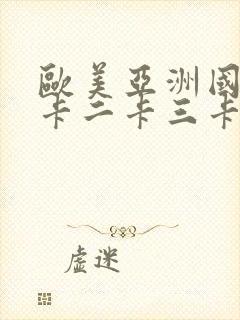 歐美亞洲國
卡二卡三卡
虛迷